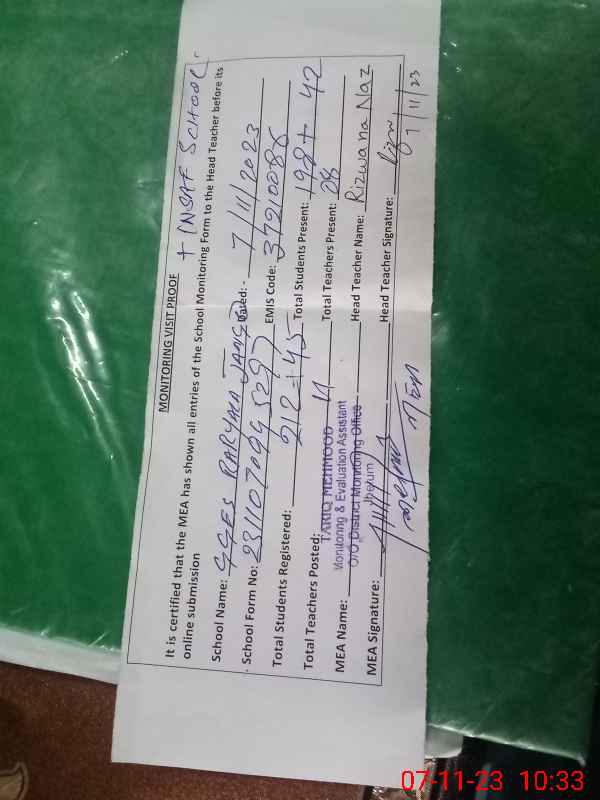 MONITORING VISIT PROOF
+ INSAF SCHOOL
It is certified that the MEA has shown all entries of the School Monitoring Form to the Head Teacher before its
online submission
School Name: GGES Dated:- 7/11/2023
School Form No: EMIS Code: 37210086
Total Students Registered: 212 = 45 Total Students Present: 198 + 42
Total Teachers Posted: 11 Total Teachers Present: 08
MEA Name: TARIQ MEHMOOD Head Teacher Name: Rizwana Naz
Monitoring & Evaluation Assistant
O/O District Monitoring Office
Jhelum
MEA Signature: Head Teacher Signature:
07/11/23
07-11-23 10:33